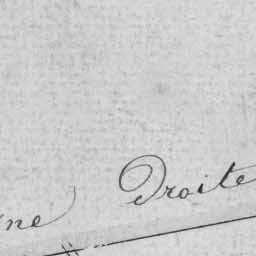 ne Droite